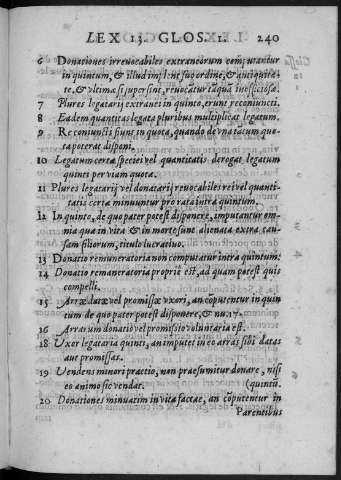 LEX 13. GLOS. 1. 240
6 Donationes irreuocabiles extraneorum computantur
in quintum, & illud implent suo ordine, & antiquita-
te, & vltima si supersint, reuocãtur tãquã inofficiosæ.
7 Plures legatarij extranei in quinto, erunt reconiuncti.
8 Eadem quantitas legata pluribus multiplicat legatum.
9 Reconiuncti fiunt in quota, quando de vna tacum quo-
ta poterat disponi.
10 Legatum certæ speciei vel quantitatis derogat legatum
quinti per viam quota.
11 Plures legatarij vel donatarij reuocabiles rei vel quanti-
tatis certæ minuuntur pro rata intra quintum.
12 In quinto, de quo pater potest disponere, imputantur om-
nia quæ in vita & in morte sunt alienata extra cau-
sam filiorum, titulo lucratiuo.
13 Donatio remuneratoria non computatur intra quintum.
14 Donatio remuneratoria propriè est, ad quam potest quis
compelli.
15 Arræ datæ vel promissæ vxori, an cõputentur in quin
tum de quo pater potest disponere, & nu. 17.
16 Arrarum donatio vel promissio voluntaria est.
18 Uxer legataria quinti, an imputet in eo arras sibi datas
aut promissas.
19 Vendens minori prætio, non præsumitur donare, nisi
eo animo sic vendat. (quintũ.
20 Donationes minuatim in vita factæ, an cõputentur in
Parentibus